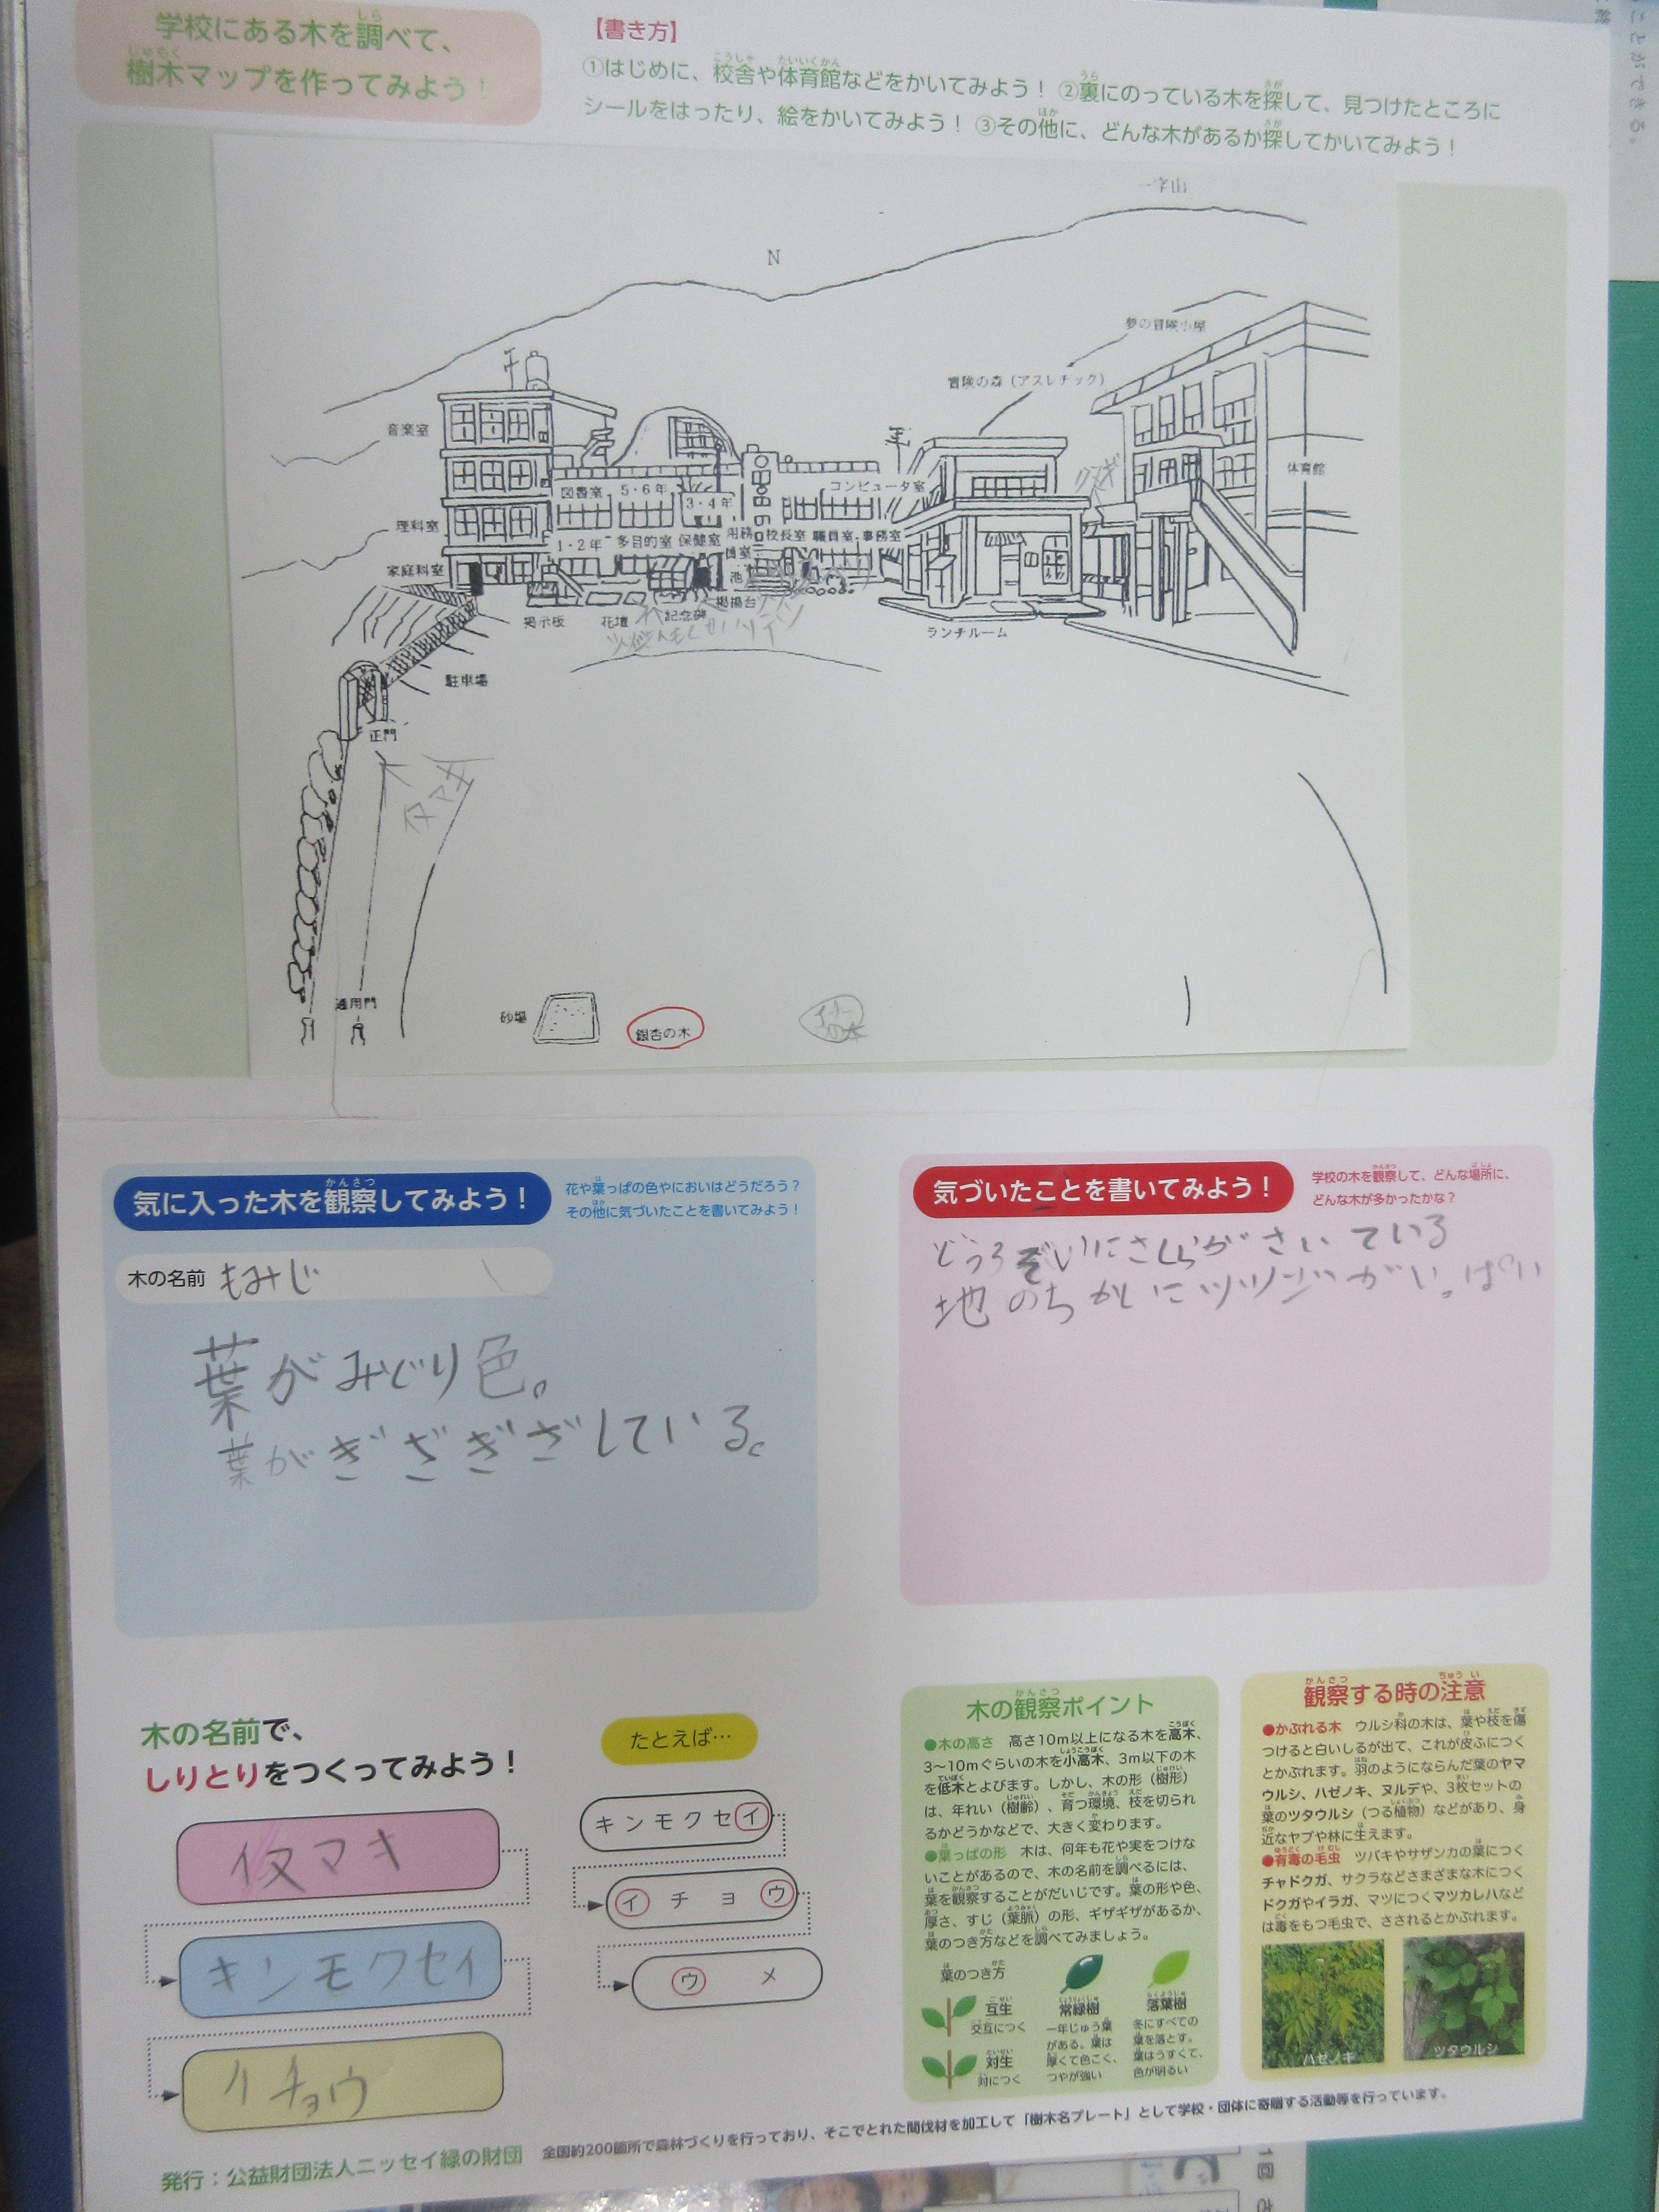 学校にある木を調べて、
樹木マップを作ってみよう！
【書き方】
①はじめに、校舎や体育館などをかいてみよう！ ②裏にのっている木を探して、見つけたところに
シールをはったり、絵をかいてみよう！ ③その他に、どんな木があるか探してかいてみよう！
一字山
N
夢の冒険小屋
冒険の森（アスレチック）
音楽室
体育館
クヌギ
図書室 5・6年
3・4年
コンピュータ室
理科室
1・2年 多目的室 保健室 用務員室 校長室 職員室 事務室
家庭科室
池
掲示板
花壇
記念碑
掲揚台
ランチルーム
駐車場
正門
イヌマキ
通用門
砂場
銀杏の木
気に入った木を観察してみよう！
花や葉っぱの色やにおいはどうだろう？
その他に気づいたことを書いてみよう！
木の名前 もみじ
葉がみどり色。
葉がぎざぎざしている。
気づいたことを書いてみよう！
学校の木を観察して、どんな場所に、
どんな木が多かったかな？
どうろぞいにさくらがさいている
地のちかくにツツジがいっぱい
木の名前で、
しりとりをつくってみよう！
イヌマキ
キンモクセイ
イチョウ
たとえば…
キンモクセイ
イチョウ
ウメ
木の観察ポイント
●木の高さ 高さ10m以上になる木を高木、
3〜10mぐらいの木を小高木、3m以下の木
を低木とよびます。しかし、木の形（樹形）
は、年れい（樹齢）、育つ環境、枝を切られ
るかどうかなどで、大きく変わります。
●葉っぱの形 木は、何年も花や実をつけな
いことがあるので、木の名前を調べるには、
葉を観察することがだいじです。葉の形や色、
厚さ、すじ（葉脈）の形、ギザギザがあるか、
葉のつき方などを調べてみましょう。
葉のつき方
互生
交互につく
対生
対につく
常緑樹
一年じゅう葉
がある。葉は
厚くて色こく、
つやが強い
落葉樹
冬にすべての
葉を落とす。
葉はうすくて、
色が明るい
観察する時の注意
●かぶれる木 ウルシ科の木は、葉や枝を傷
つけると白いしるが出て、これが皮ふにつく
とかぶれます。羽のようにならんだ葉のヤマ
ウルシ、ハゼノキ、ヌルデや、3枚セットの
葉のツタウルシ（つる植物）などがあり、身
近なヤブや林に生えます。
●有毒の毛虫 ツバキやサザンカの葉につく
チャドクガ、サクラなどさまざまな木につく
ドクガやイラガ、マツにつくマツカレハなど
は毒をもつ毛虫で、さされるとかぶれます。
ハゼノキ
ツタウルシ
発行：公益財団法人ニッセイ緑の財団
全国約200箇所で森林づくりを行っており、そこでとれた間伐材を加工して「樹木名プレート」として学校・団体に寄贈する活動等を行っています。